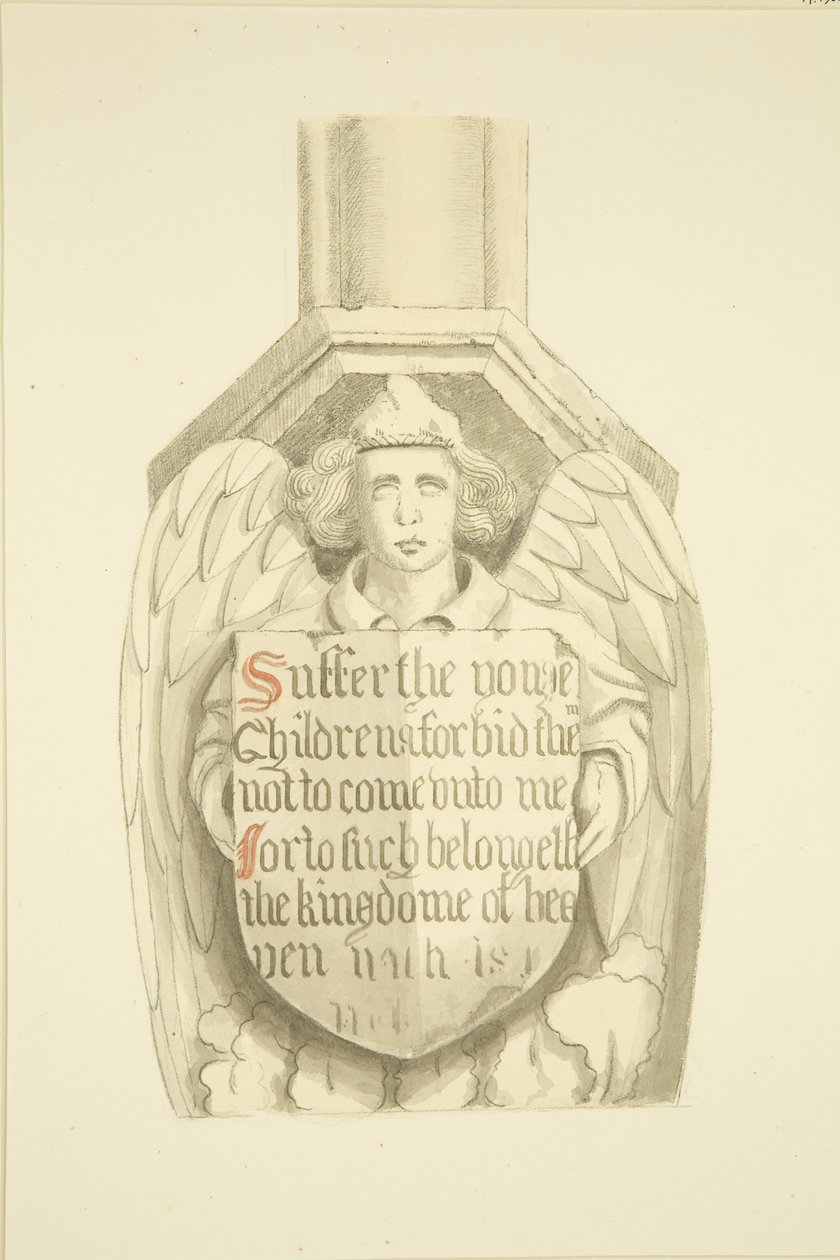 Suffer the yonge
Children & forbid the m
not to come vnto me
for to such belongeth
the kingdome of hea
ven